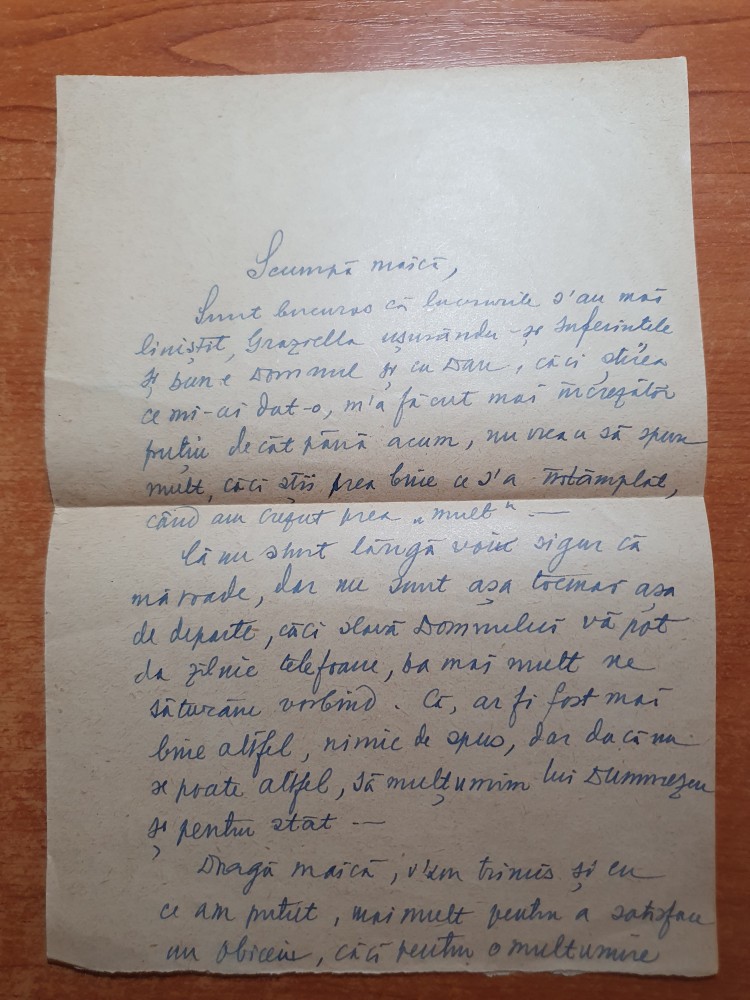 Scumpă maică,
Sunt bucuros că lucrurile s'au mai
liniștit, Graziella ușurându-și suferințele
și bun e Domnul și cu Dan, căci știrea
ce mi-ai dat-o, m'a făcut mai încrezător
puțin decât până acum, nu vreau să spun
mult, căci știi prea bine ce s'a întâmplat,
când am crezut prea „mult" —
Că nu sunt lângă voi sigur că
mă roade, dar nu sunt așa tocmai așa
de departe, căci slavă Domnului vă pot
da zilnic telefoane, ba mai mult ne
săturăm vorbind. Că, ar fi fost mai
bine altfel, nimic de spus, dar dacă nu
se poate altfel, să mulțumim lui Dumnezeu
și pentru atât —
Dragă maică, v'am trimis și eu
ce am putut, mai mult pentru a satisface
un obiceiu, căci pentru o mulțumire